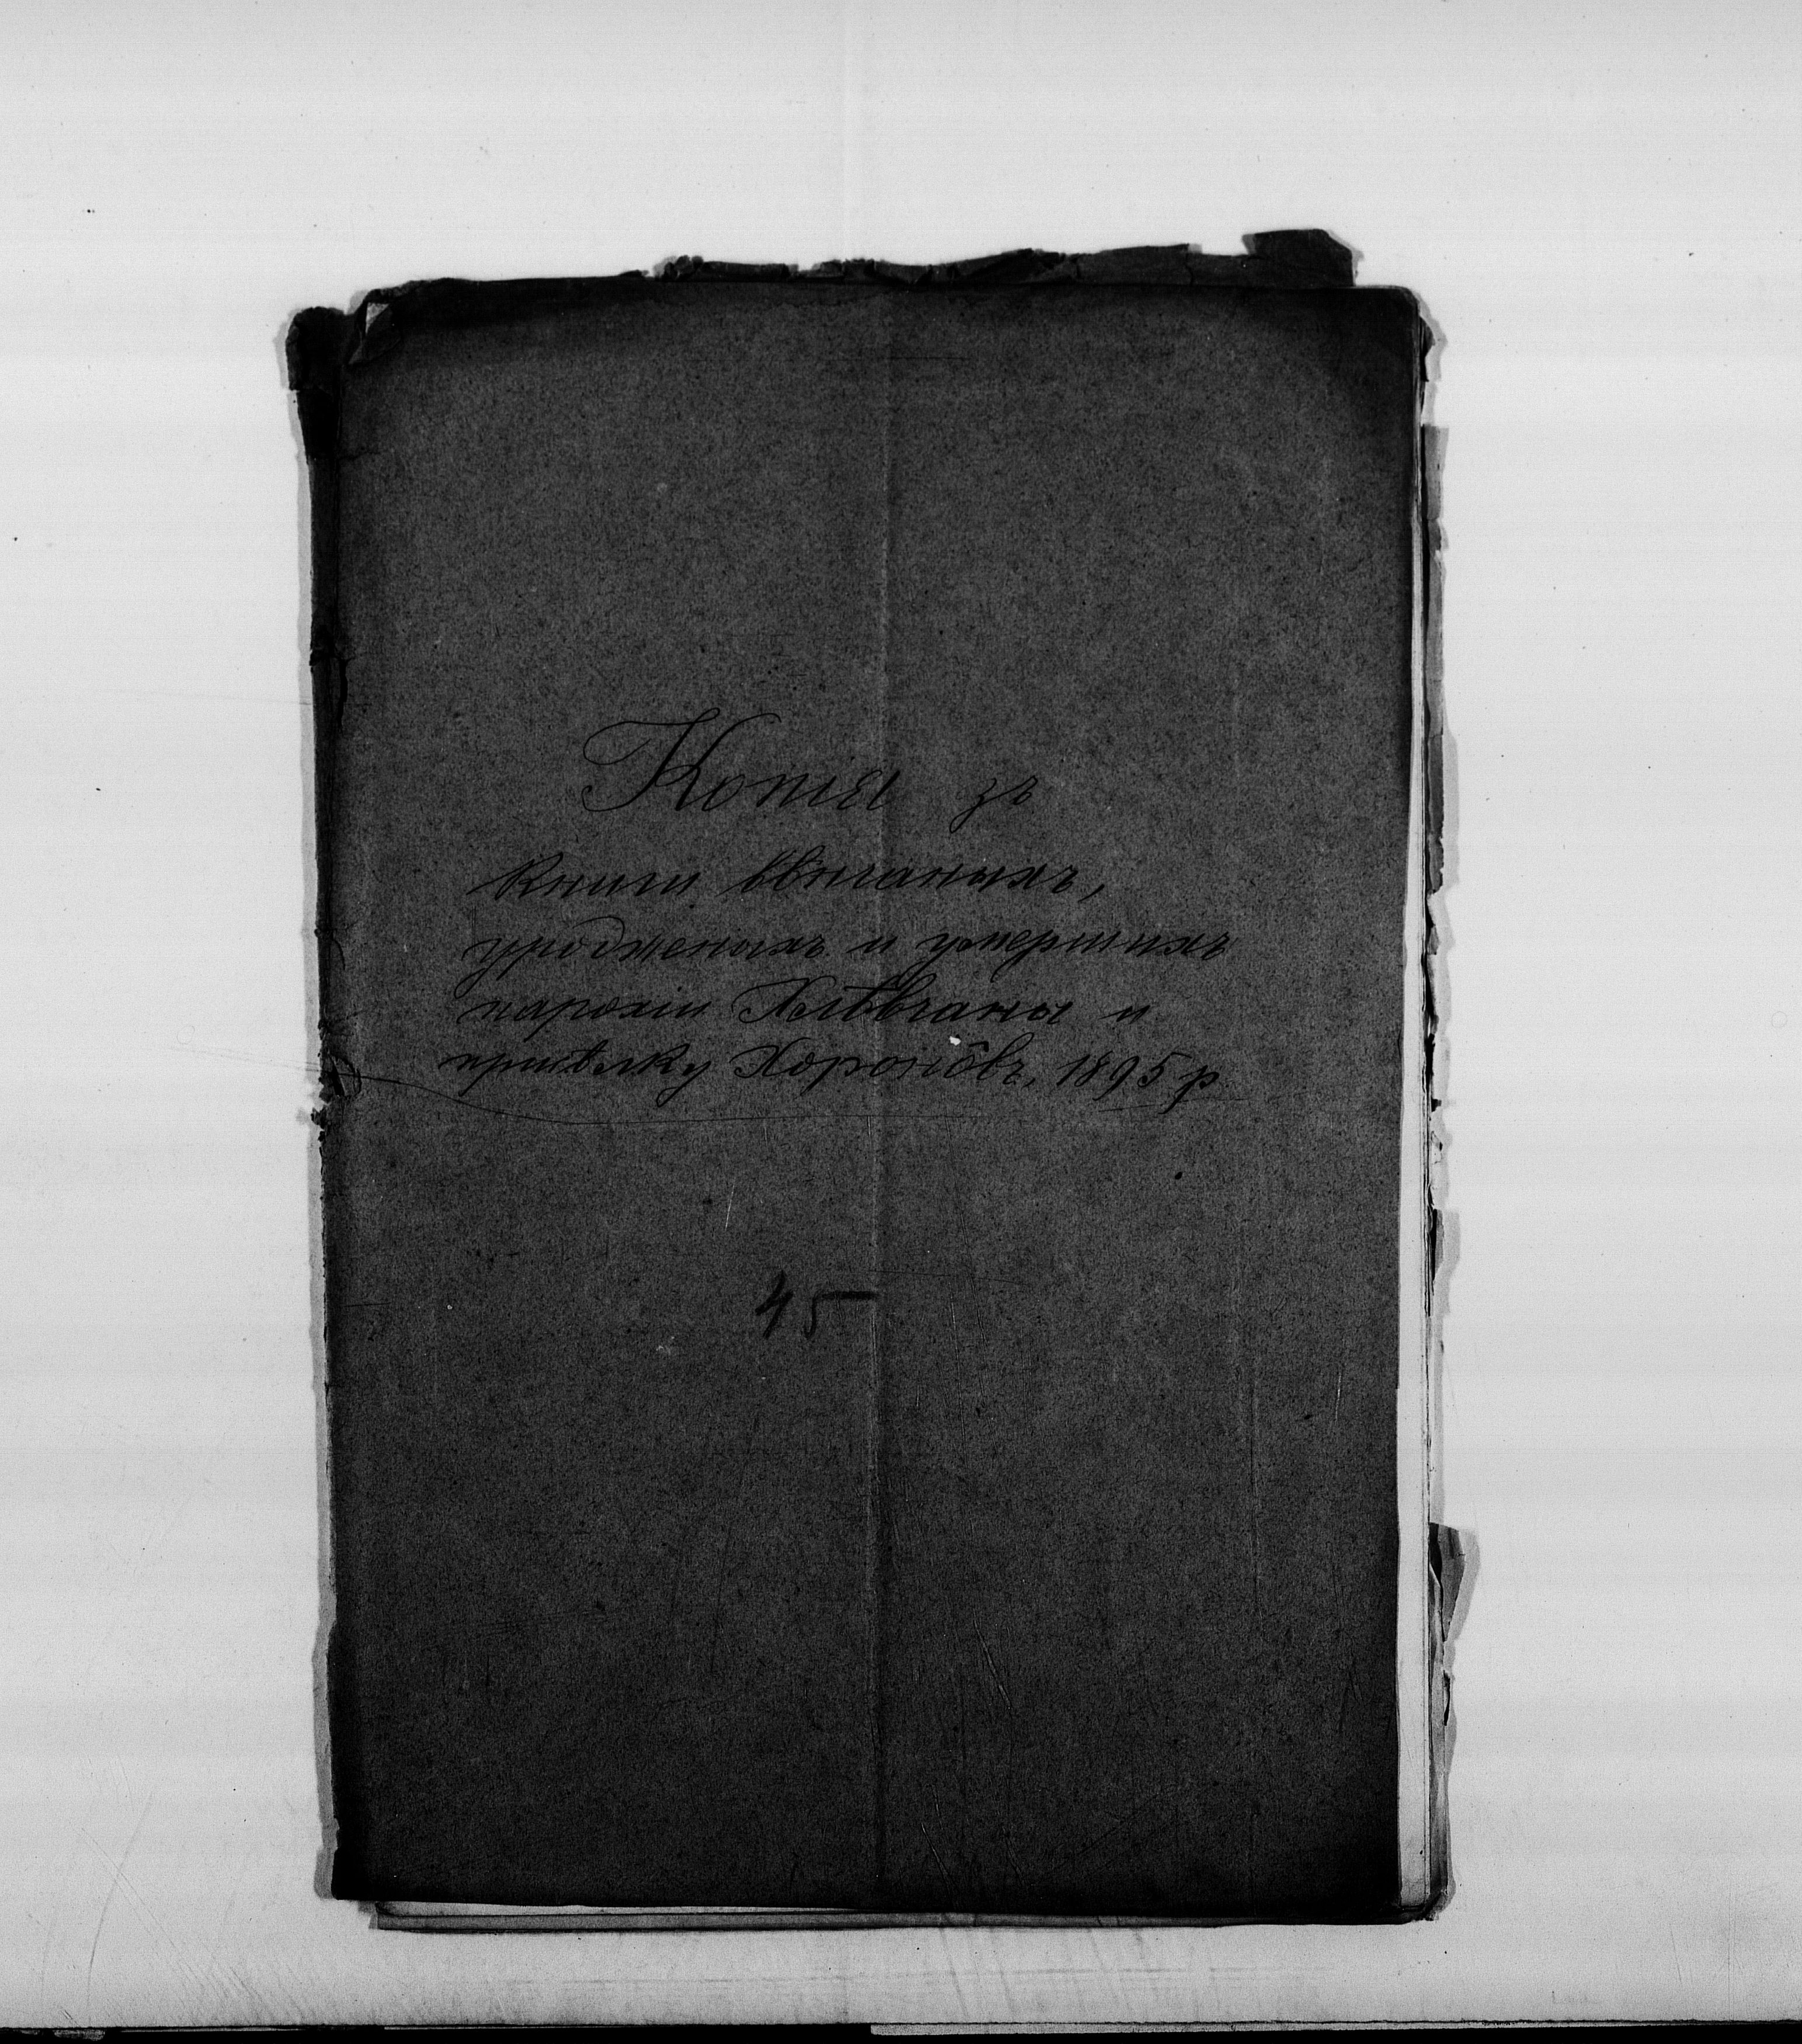 Копія зъ
книги вѣнчаныхъ,
уродженыхъ и умершихъ
парохіи Хлѣвчаны и
присѣлку Хоронôвъ, 1895 р.
45